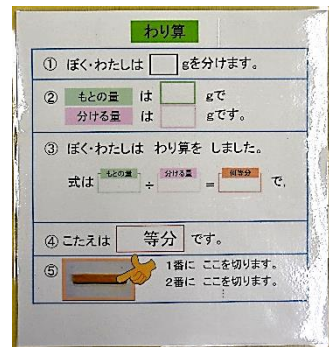 わり算
① ぼく・わたしは gを分けます。
② もとの量 は gで
分ける量 は gです。
③ ぼく・わたしは わり算を しました。
もとの量 分ける量 何等分
式は ÷ = で,
④ こたえは 等分 です。
⑤ 1番に ここを切ります。
2番に ここを切ります。